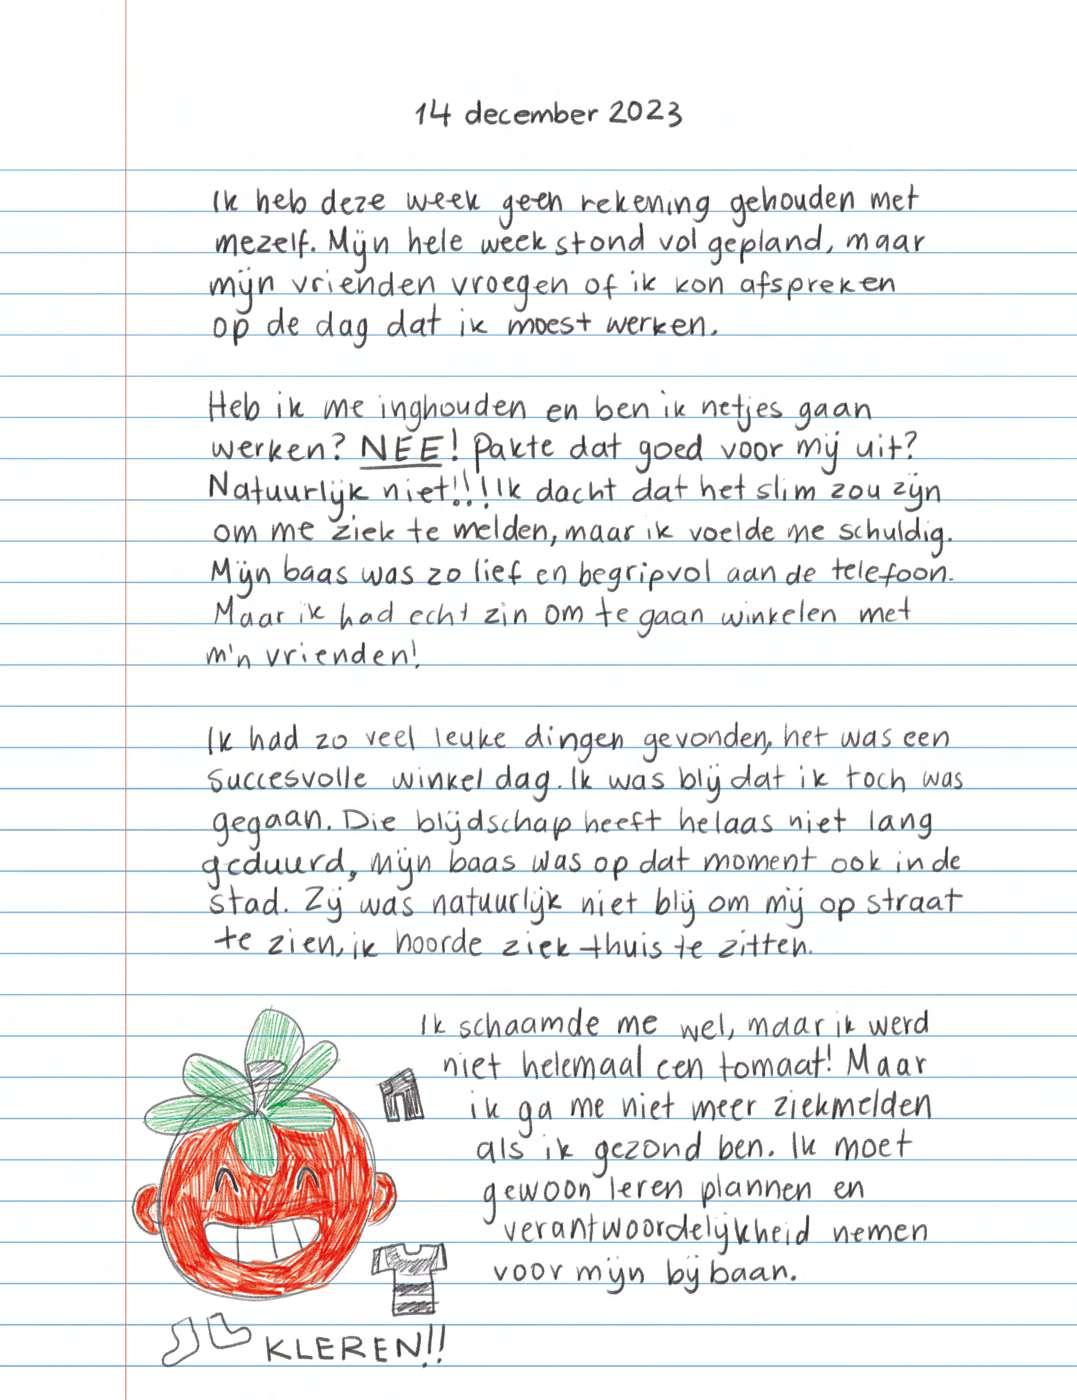 14 december 2023
Ik heb deze week geen rekening gehouden met
mezelf. Mijn hele week stond vol gepland, maar
mijn vrienden vroegen of ik kon afspreken
op de dag dat ik moest werken.
Heb ik me inghouden en ben ik netjes gaan
werken? NEE! Pakte dat goed voor mij uit?
Natuurlijk niet!!! Ik dacht dat het slim zou zijn
om me ziek te melden, maar ik voelde me schuldig.
Mijn baas was zo lief en begripvol aan de telefoon.
Maar ik had echt zin om te gaan winkelen met
m'n vrienden!
Ik had zo veel leuke dingen gevonden, het was een
succesvolle winkel dag. Ik was blij dat ik toch was
gegaan. Die blijdschap heeft helaas niet lang
geduurd, mijn baas was op dat moment ook in de
stad. Zij was natuurlijk niet blij om mij op straat
te zien, ik hoorde ziek thuis te zitten.
Ik schaamde me wel, maar ik werd
niet helemaal een tomaat! Maar
ik ga me niet meer ziekmelden
als ik gezond ben. Ik moet
gewoon leren plannen en
verantwoordelijkheid nemen
voor mijn bijbaan.
KLEREN!!